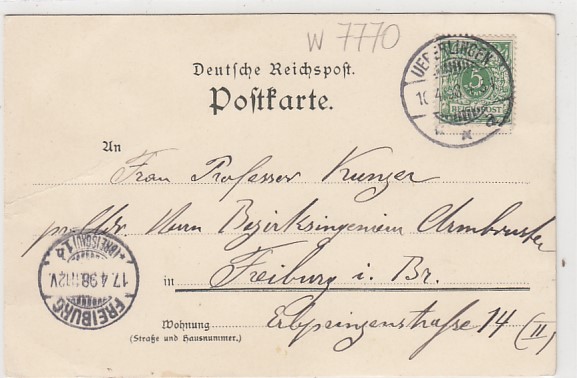 W 7770
Deutsche Reichspost.
Postkarte.
UEBERLINGEN
5
REICHSPOST
a
An
Frau Professor Kunzer
Herrn Bezirksingenieur Armbruster
in Freiburg i. Br.
Wohnung Erbprinzenstraße 14 (II)
(Straße und Hausnummer.)
(BREISGAU) 1 a
17.4.98.11-12V.
FREIBURG